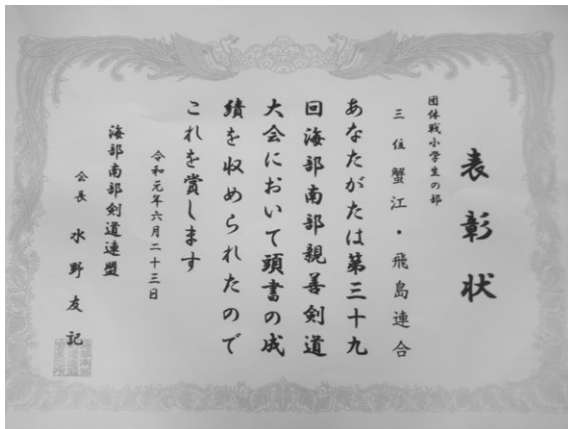 表彰状
団体戦小学生の部
三位 蟹江・飛島連合
あなたがたは第三十九
回海部南部親善剣道
大会において頭書の成
績を収められたので
これを賞します
令和元年六月二十三日
海部南部剣道連盟
会長 水野友記